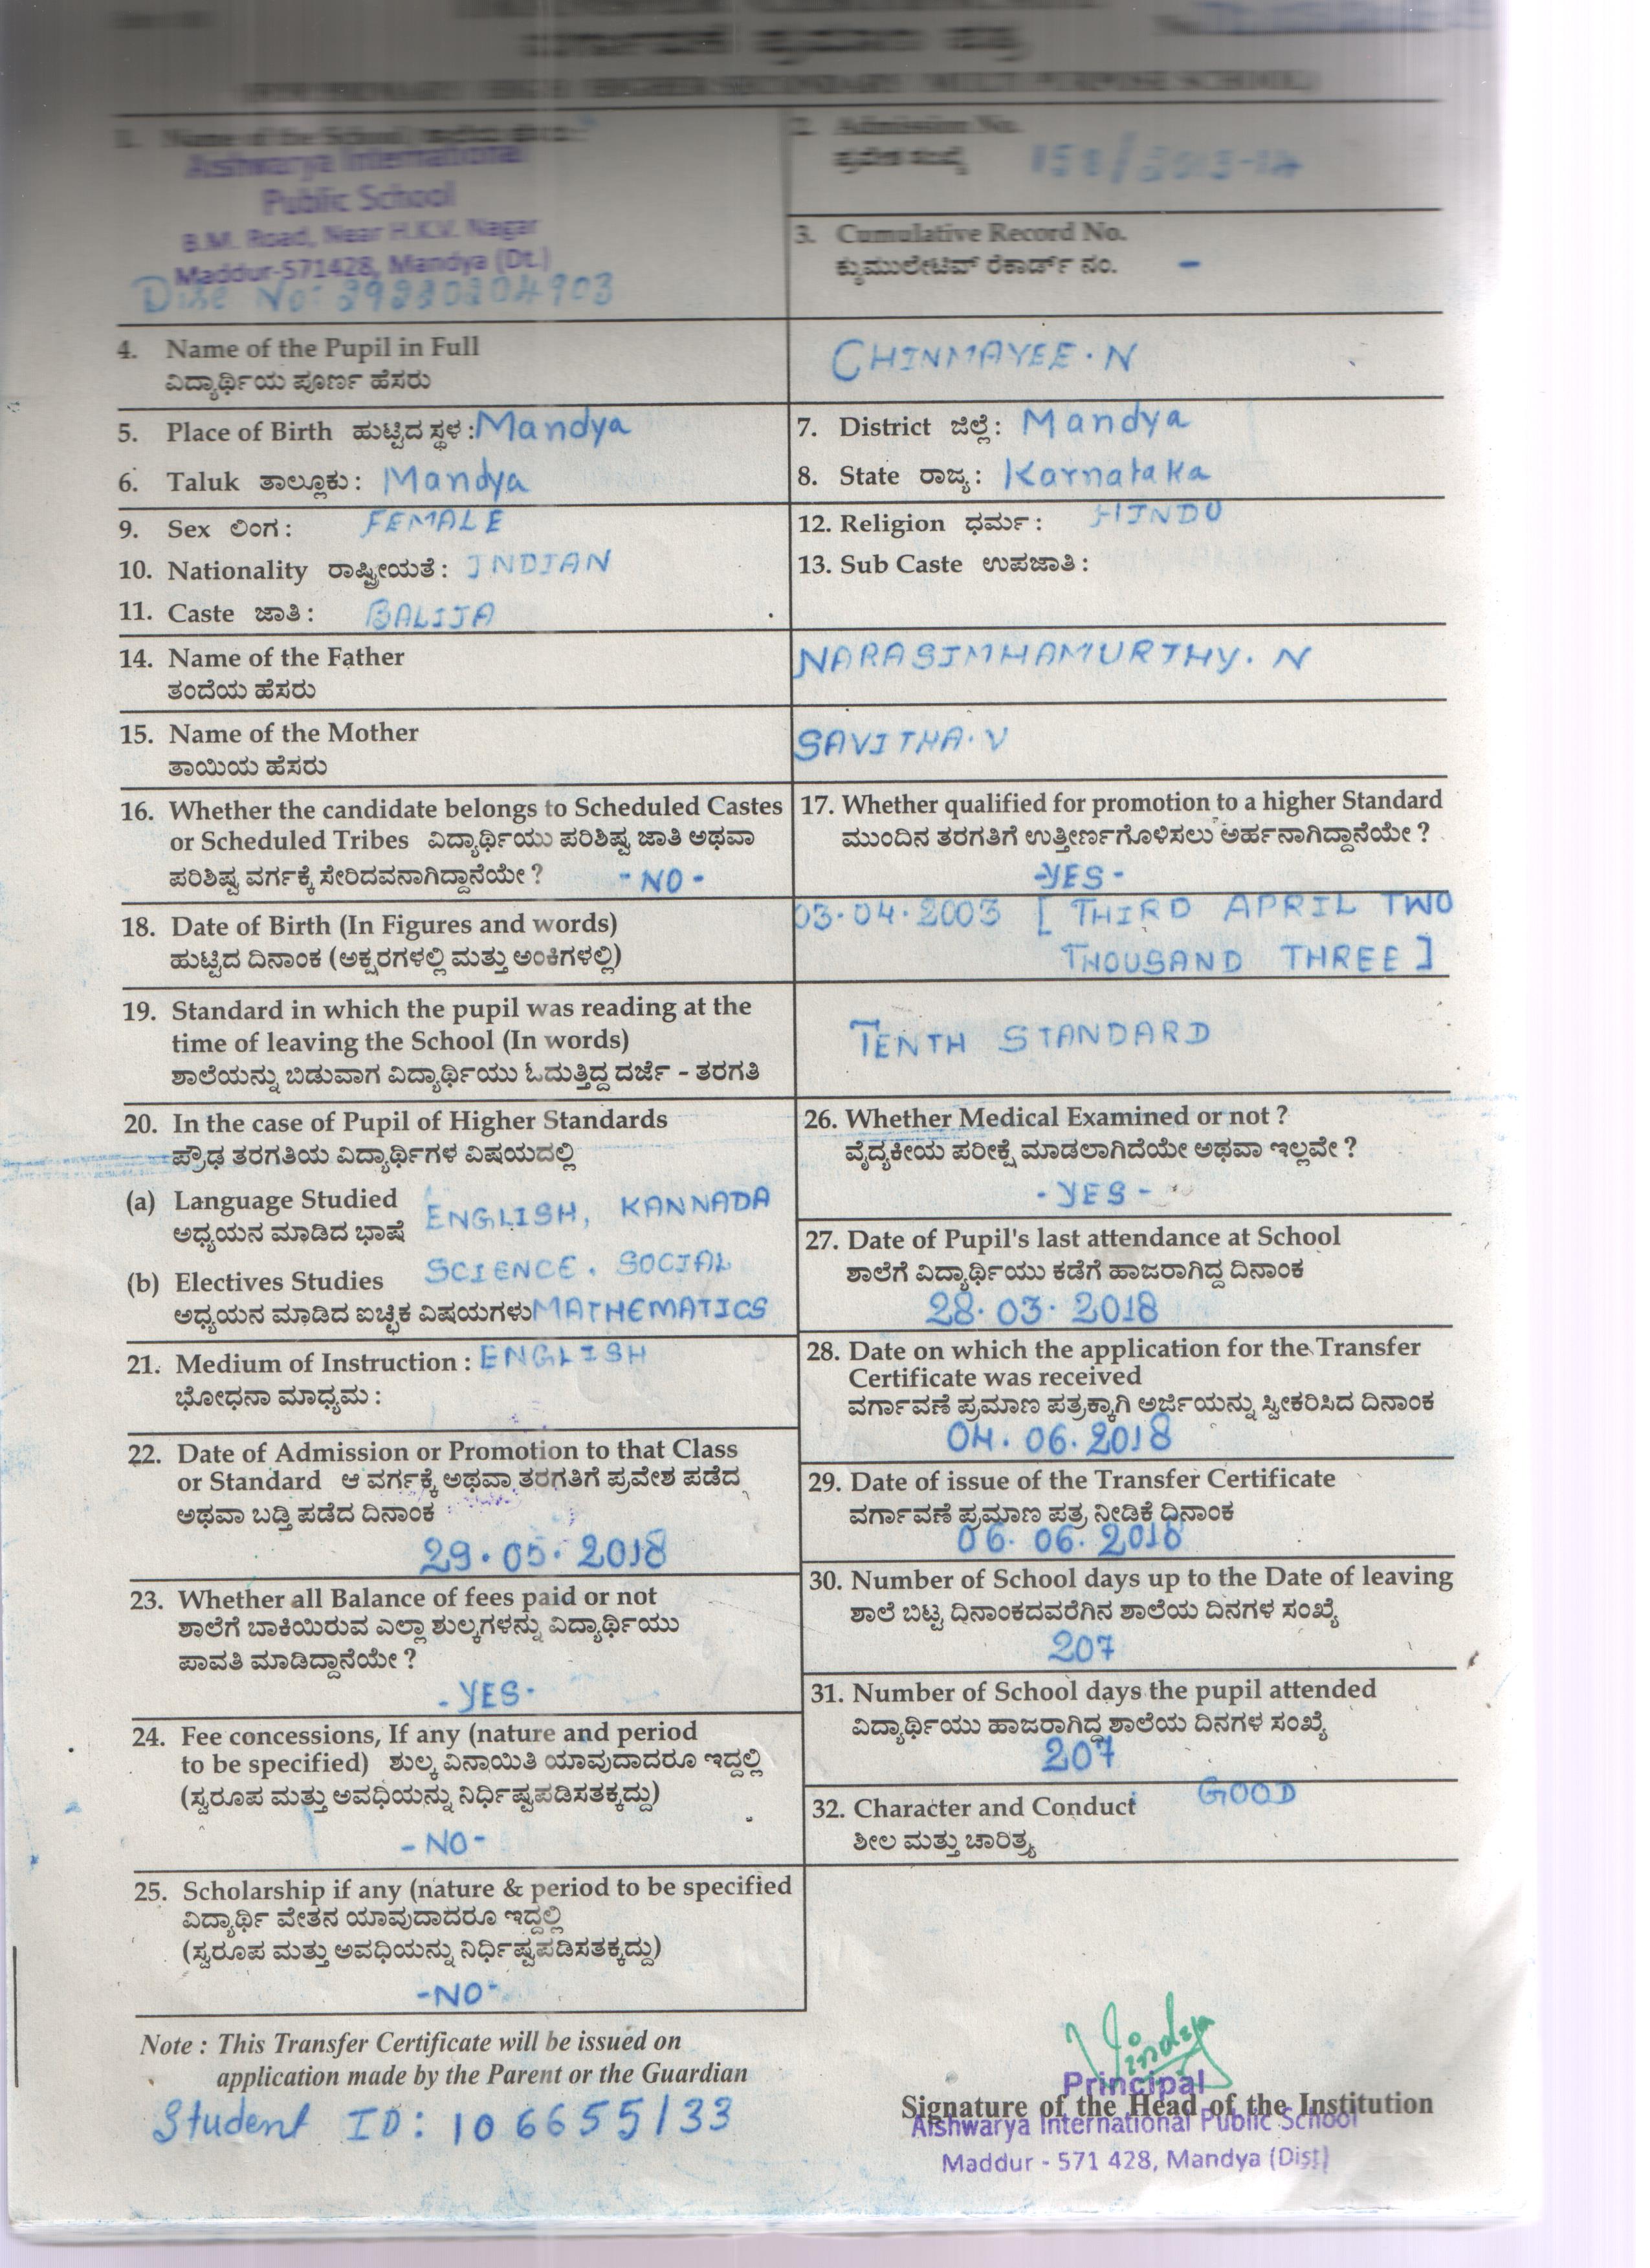 ವರ್ಗಾವಣೆ ಪ್ರಮಾಣ ಪತ್ರ
1. Name of the School
Aishwarya International
Public School
B.M. Road, Near H.K.V. Nagar
Maddur-571428, Mandya (Dt.)
Dise No:
2. Admission No.
ಪ್ರವೇಶ ಸಂಖ್ಯೆ
3. Cumulative Record No.
ಕ್ಯುಮುಲೇಟಿವ್ ರೆಕಾರ್ಡ್ ನಂ. -
4. Name of the Pupil in Full CHINMAYEE. N
ವಿದ್ಯಾರ್ಥಿಯ ಪೂರ್ಣ ಹೆಸರು
5. Place of Birth ಹುಟ್ಟಿದ ಸ್ಥಳ : Mandya
6. Taluk ತಾಲ್ಲೂಕು : Mandya
7. District ಜಿಲ್ಲೆ : Mandya
8. State ರಾಜ್ಯ : Karnataka
9. Sex ಲಿಂಗ : FEMALE
10. Nationality ರಾಷ್ಟ್ರೀಯತೆ : INDIAN
11. Caste ಜಾತಿ : BALIJA
12. Religion ಧರ್ಮ : HINDU
13. Sub Caste ಉಪಜಾತಿ :
14. Name of the Father NARASIMHAMURTHY. N
ತಂದೆಯ ಹೆಸರು
15. Name of the Mother SAVITHA. V
ತಾಯಿಯ ಹೆಸರು
16. Whether the candidate belongs to Scheduled Castes
or Scheduled Tribes ವಿದ್ಯಾರ್ಥಿಯು ಪರಿಶಿಷ್ಟ ಜಾತಿ ಅಥವಾ
ಪರಿಶಿಷ್ಟ ವರ್ಗಕ್ಕೆ ಸೇರಿದವನಾಗಿದ್ದಾನೆಯೇ ? - NO -
17. Whether qualified for promotion to a higher Standard
ಮುಂದಿನ ತರಗತಿಗೆ ಉತ್ತೀರ್ಣಗೊಳಿಸಲು ಅರ್ಹನಾಗಿದ್ದಾನೆಯೇ ?
-YES-
18. Date of Birth (In Figures and words)
ಹುಟ್ಟಿದ ದಿನಾಂಕ (ಅಕ್ಷರಗಳಲ್ಲಿ ಮತ್ತು ಅಂಕಿಗಳಲ್ಲಿ)
03.04.2003 [ THIRD APRIL TWO
THOUSAND THREE ]
19. Standard in which the pupil was reading at the
time of leaving the School (In words)
ಶಾಲೆಯನ್ನು ಬಿಡುವಾಗ ವಿದ್ಯಾರ್ಥಿಯು ಓದುತ್ತಿದ್ದ ದರ್ಜೆ - ತರಗತಿ
TENTH STANDARD
20. In the case of Pupil of Higher Standards
ಪ್ರೌಢ ತರಗತಿಯ ವಿದ್ಯಾರ್ಥಿಗಳ ವಿಷಯದಲ್ಲಿ
(a) Language Studied ENGLISH, KANNADA
ಅಧ್ಯಯನ ಮಾಡಿದ ಭಾಷೆ
(b) Electives Studies SCIENCE. SOCIAL
ಅಧ್ಯಯನ ಮಾಡಿದ ಐಚ್ಛಿಕ ವಿಷಯಗಳು MATHEMATICS
21. Medium of Instruction : ENGLISH
ಭೋಧನಾ ಮಾಧ್ಯಮ :
22. Date of Admission or Promotion to that Class
or Standard ಆ ವರ್ಗಕ್ಕೆ ಅಥವಾ ತರಗತಿಗೆ ಪ್ರವೇಶ ಪಡೆದ
ಅಥವಾ ಬಡ್ತಿ ಪಡೆದ ದಿನಾಂಕ
29.05.2018
23. Whether all Balance of fees paid or not
ಶಾಲೆಗೆ ಬಾಕಿಯಿರುವ ಎಲ್ಲಾ ಶುಲ್ಕಗಳನ್ನು ವಿದ್ಯಾರ್ಥಿಯು
ಪಾವತಿ ಮಾಡಿದ್ದಾನೆಯೇ ?
- YES -
24. Fee concessions, If any (nature and period
to be specified) ಶುಲ್ಕ ವಿನಾಯಿತಿ ಯಾವುದಾದರೂ ಇದ್ದಲ್ಲಿ
(ಸ್ವರೂಪ ಮತ್ತು ಅವಧಿಯನ್ನು ನಿರ್ಧಿಷ್ಟಪಡಿಸತಕ್ಕದ್ದು)
- NO -
25. Scholarship if any (nature & period to be specified
ವಿದ್ಯಾರ್ಥಿ ವೇತನ ಯಾವುದಾದರೂ ಇದ್ದಲ್ಲಿ
(ಸ್ವರೂಪ ಮತ್ತು ಅವಧಿಯನ್ನು ನಿರ್ಧಿಷ್ಟಪಡಿಸತಕ್ಕದ್ದು)
-NO-
26. Whether Medical Examined or not ?
ವೈದ್ಯಕೀಯ ಪರೀಕ್ಷೆ ಮಾಡಲಾಗಿದೆಯೇ ಅಥವಾ ಇಲ್ಲವೇ ?
- YES -
27. Date of Pupil's last attendance at School
ಶಾಲೆಗೆ ವಿದ್ಯಾರ್ಥಿಯು ಕಡೆಗೆ ಹಾಜರಾಗಿದ್ದ ದಿನಾಂಕ
28.03.2018
28. Date on which the application for the Transfer
Certificate was received
ವರ್ಗಾವಣೆ ಪ್ರಮಾಣ ಪತ್ರಕ್ಕಾಗಿ ಅರ್ಜಿಯನ್ನು ಸ್ವೀಕರಿಸಿದ ದಿನಾಂಕ
04.06.2018
29. Date of issue of the Transfer Certificate
ವರ್ಗಾವಣೆ ಪ್ರಮಾಣ ಪತ್ರ ನೀಡಿಕೆ ಧಿನಾಂಕ
06.06.2018
30. Number of School days up to the Date of leaving
ಶಾಲೆ ಬಿಟ್ಟ ಧಿನಾಂಕದವರೆಗಿನ ಶಾಲೆಯ ದಿನಗಳ ಸಂಖ್ಯೆ
207
31. Number of School days the pupil attended
ವಿದ್ಯಾರ್ಥಿಯು ಹಾಜರಾಗಿದ್ದ ಶಾಲೆಯ ದಿನಗಳ ಸಂಖ್ಯೆ
207
32. Character and Conduct GOOD
ಶೀಲ ಮತ್ತು ಚಾರಿತ್ರ್ಯ
Note : This Transfer Certificate will be issued on
application made by the Parent or the Guardian
Student ID: 106655133
Vindya
Principal
Signature of the Head of the Institution
Aishwarya International Public School
Maddur - 571 428, Mandya (Dist)